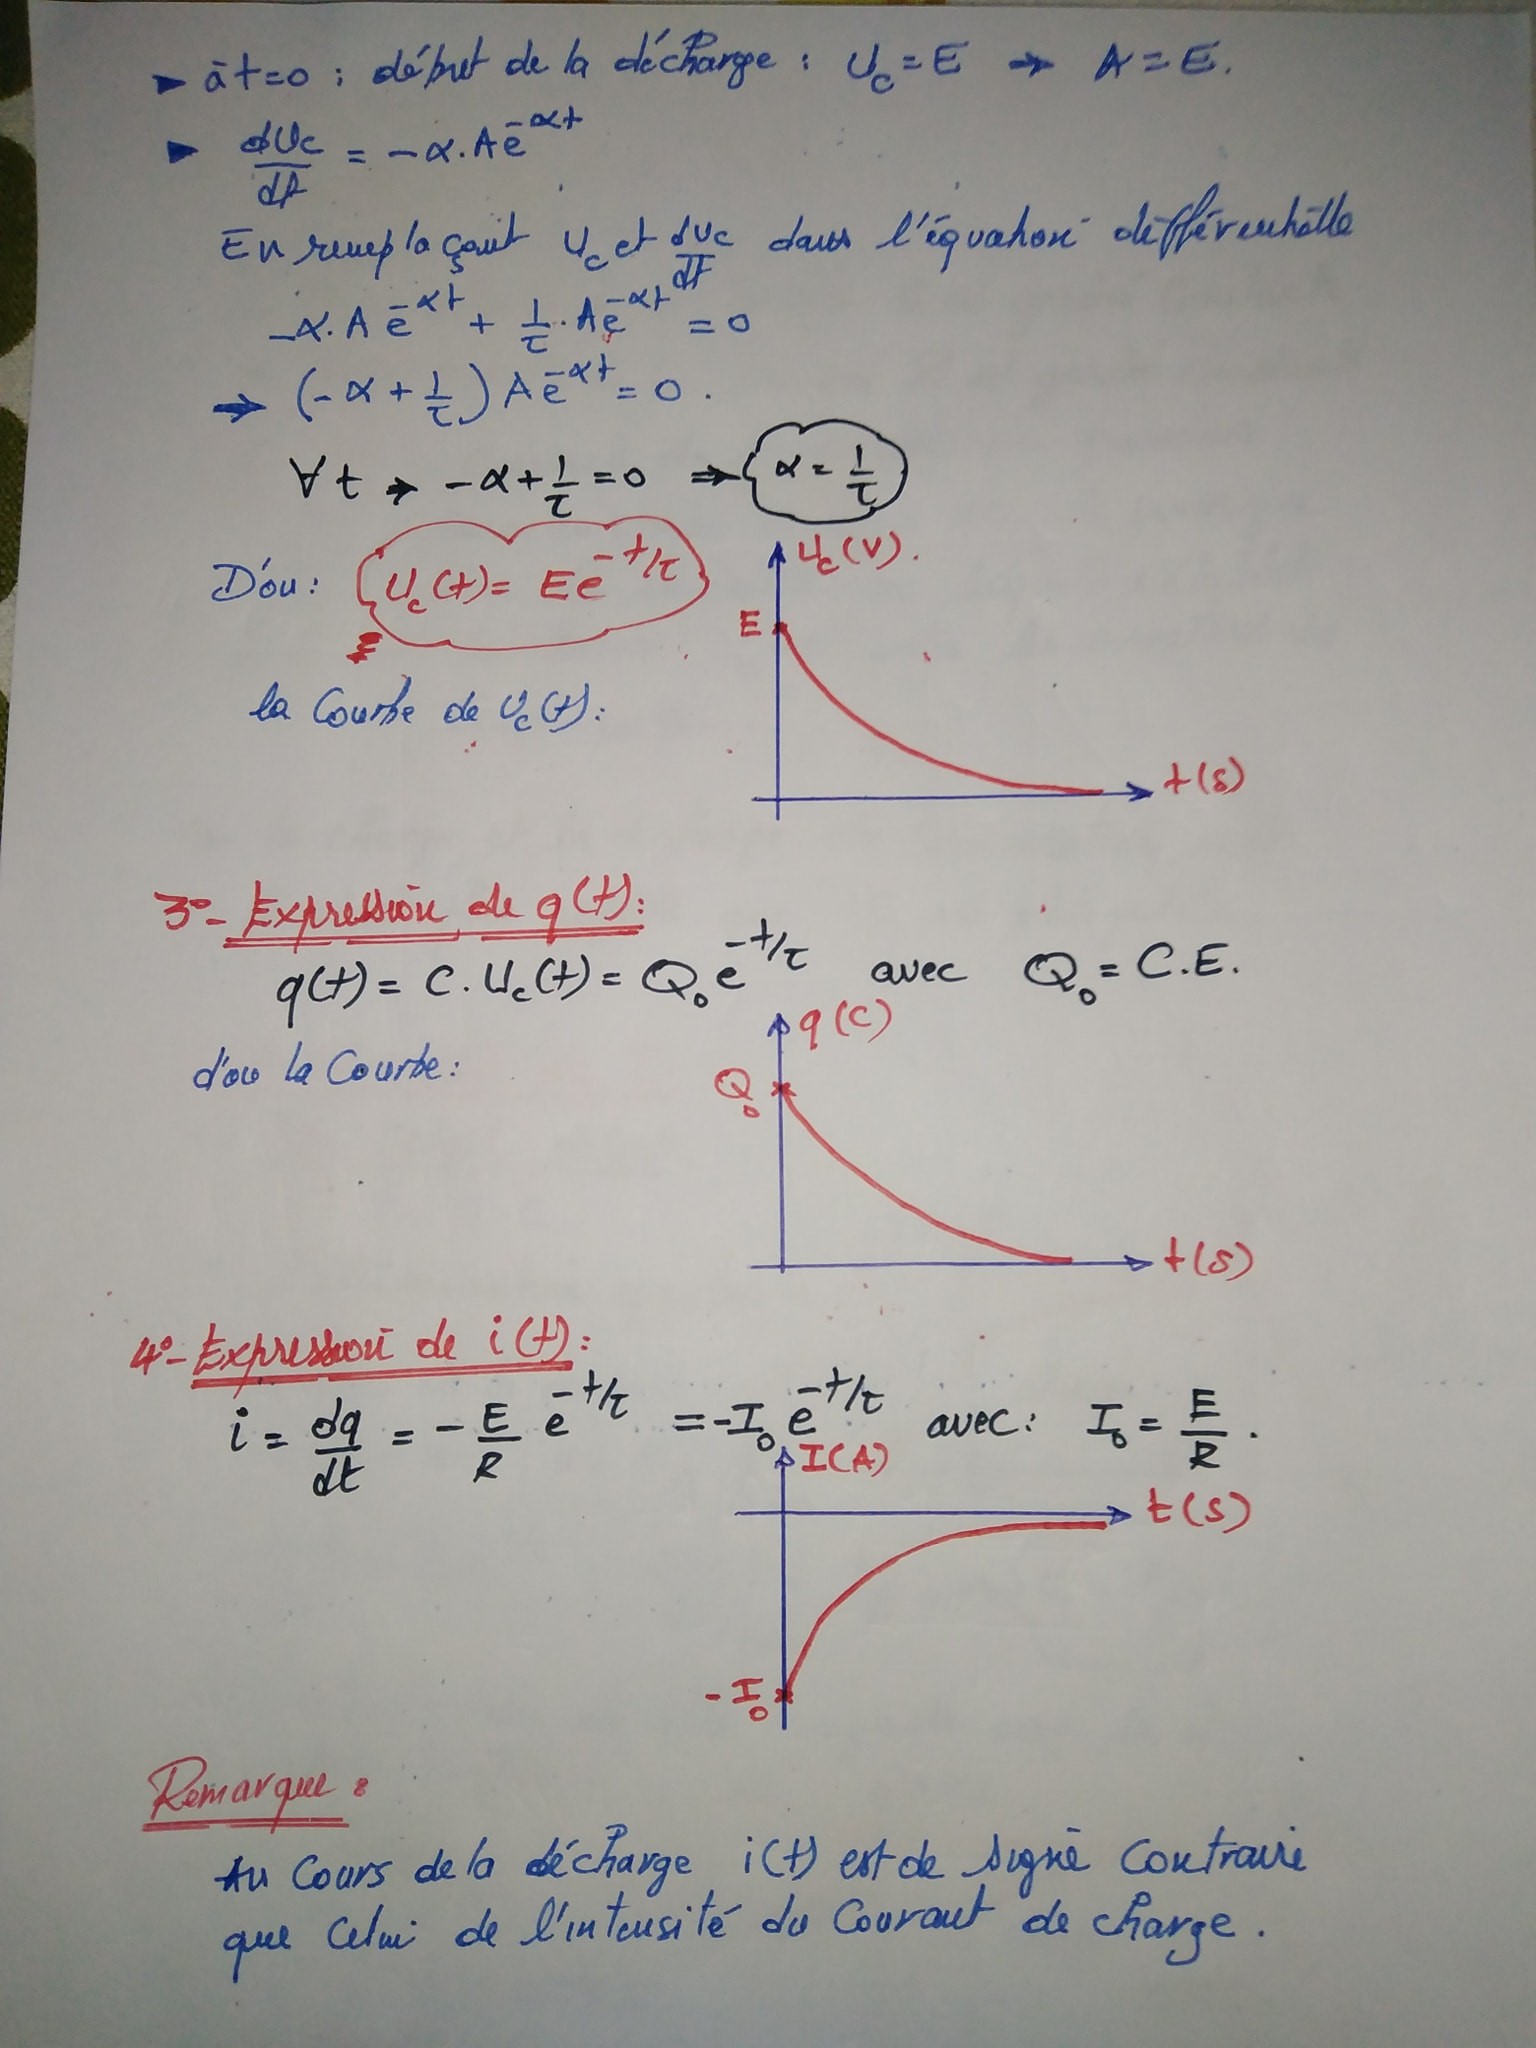 ► à t=0 : début de la décharge : Uc = E → A = E.
► dUc/dt = -α.A e^-αt
En remplaçant Uc et dUc/dt dans l'équation différentielle
-α.A e^-αt + 1/τ . A e^-αt = 0
⇒ (-α + 1/τ) A e^-αt = 0.
∀ t → -α + 1/τ = 0 ⇒ α = 1/τ
D'ou : Uc(t) = E e^-t/τ
Uc(V).
E
la Courbe de Uc(t) :
t(s)
3°- Expression de q(t) :
q(t) = C.Uc(t) = Q₀ e^-t/τ avec Q₀ = C.E.
q(C)
d'ou la Courbe :
Q₀
t(s)
4°- Expression de i(t) :
i = dq/dt = - E/R e^-t/τ = -I₀ e^-t/τ avec : I₀ = E/R .
I(A)
t(s)
-I₀
Remarque :
Au Cours de la décharge i(t) est de signe Contraire
que Celui de l'intensité du Courant de charge .